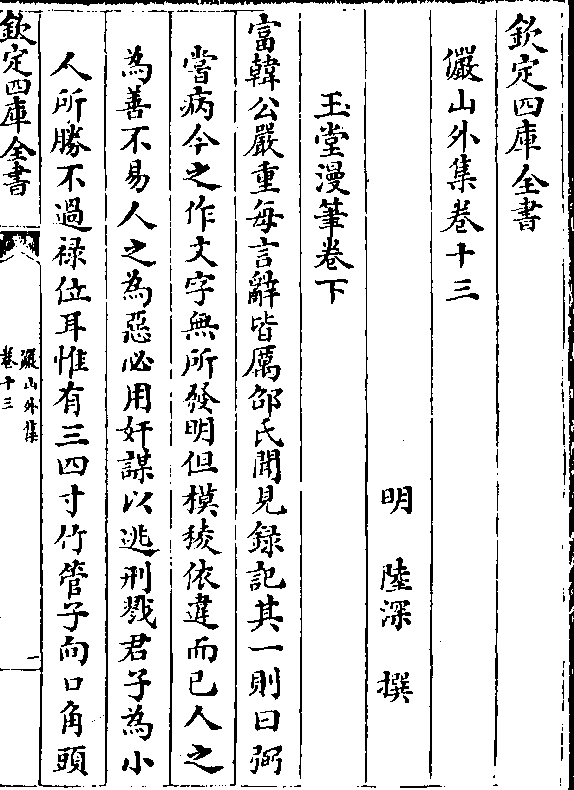 欽定四庫全書
儼山外集卷十三
明 陸深 撰
玉堂漫筆卷下
富韓公嚴重每言辭皆厲邵氏聞見録記其一則曰弼
嘗病今之作文字無所發明但模稜依違而已人之
為善不易人之為惡必用奸謀以逃刑戮君子為小
人所勝不過禄位耳惟有三四寸竹管子向口角頭
欽定四庫全書
儼山外集
卷十三
一